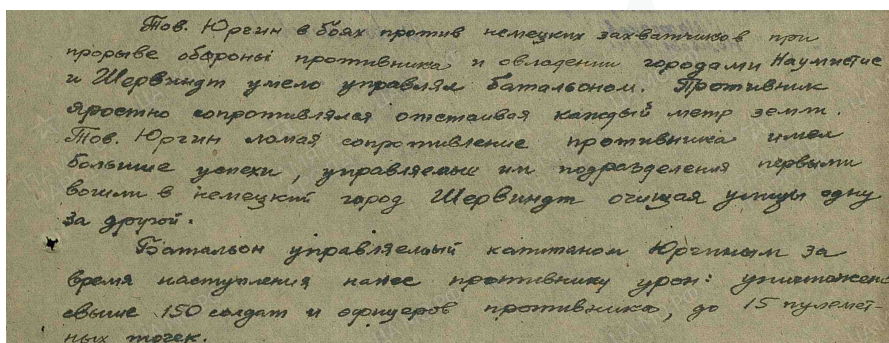 Тов. Юргин в боях против немецких захватчиков при
прорыве обороны противника и овладении городами Наумистис
и Шервиндт умело управлял батальоном. Противник
яростно сопротивлялся отстаивая каждый метр земли.
Тов. Юргин ломая сопротивление противника имел
большие успехи, управляемые им подразделения первыми
вошли в немецкий город Шервиндт очищая улицы одну
за другой.
Батальон управляемый капитаном Юргиным за
время наступления нанес противнику урон: уничтожено
свыше 150 солдат и офицеров противника, до 15 пулемет-
ных точек.